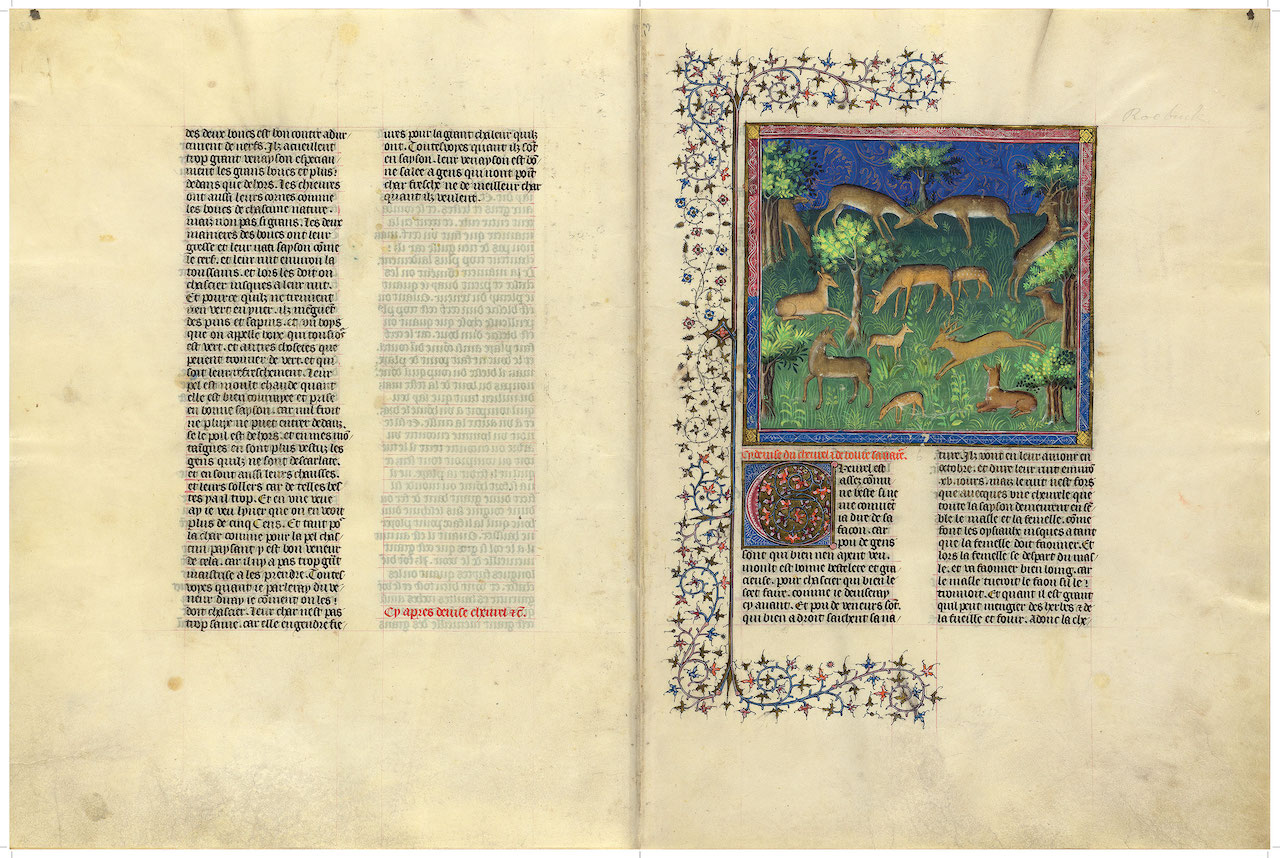 des deux boucs est bon contre a dur
cissment de nerfs. Ilz acueillent
trop grant venayson especiau
ment les grans boucs et plus
dedans que dehors. Les chieures
ont aussi leurs cornes comme
les boucs de chascune nature.
mais non pas si grans. Les deux
manieres des boucs ont leur
gresse et leur nait sayson cõme
le cerf. et leur ruit enuiron la
toussains. et lors les doit on
chascier iusques a leur ruit.
Et pource quilz ne treuuent
rien vert en yuer. ilz mẽguẽt
des pins et sapins. et vn boys
que on appelle boys qui tousiors
est vert. et autres choses que
peuent trouuer de vert. et qui
sont leur refreschement. Leur
pel est moult chaude quant
elle est bien courroyee et prise
en bonne sayson. car nul froit
ne pluye ne puet entrer dedans.
se le poil est dehors. et en mes mõ
taignes en sont plus vestuz les
gens quilz ne sont descarlate.
et en sont aussi leurs chausses.
et leurs sollers car de telles bes
tes ya il trop. Et en vne veue
ay ie veu lyuer que on veoit
plus de cinq Cens. Et tant por
la char comme pour la pel chas
cun paysant y est bon veneur
de cela. car il ny a pas trop grãt
maistrise a les prendre. Toutes
voyes quant ie parleray du ve
neur diray ie cõment on les
doit chascier. Leur char nest pas
trop saine. car elle engendre fie
ures pour la grant chaleur quilz
ont. Toutesvoyes quant ilz sõt
en sayson. leur venayson est bõ
ne salee a gens qui nont poĩt
char fresche ne de meilleur char
quant ilz veulent.
Cy apres deuise cheurel etc̃.
Roebuck
Cy deuise du cheurel et de toute sa natr̃e.
Cheurel est
assez cõmu
ne beste si ne
me conuiet
ia dire de sa
facon. car
pou de gens
sont qui bien nen ayent veu.
moult est bonne bestelete et gra
cieuse. pour chascier qui bien le
scet faire. comme ie deuiseray
cy auant. Et pou de veneurs sõt.
qui bien a droit saichent sa na
ture. Ilz vont en leur amour en
octobre. et dure leur ruit enuirõ
.xv. iours. mais le ruit nest fors
que auecques vne cheurele que
toute la sayson demeurent en sẽ
ble le masle et la femelle. cõme
font les oysiaulx iusques a tant
que la femelle doit faonner. Et
lors la femelle se depart du mas
le. et va faonner bien loing. car
le masle tueroit le faon sil le
trouuoit. Et quant il est grant
quil peut mengier des herbes et de
la fueille et fouir. Adonc la che